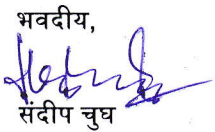 भवदीय,
संदीप चुघ